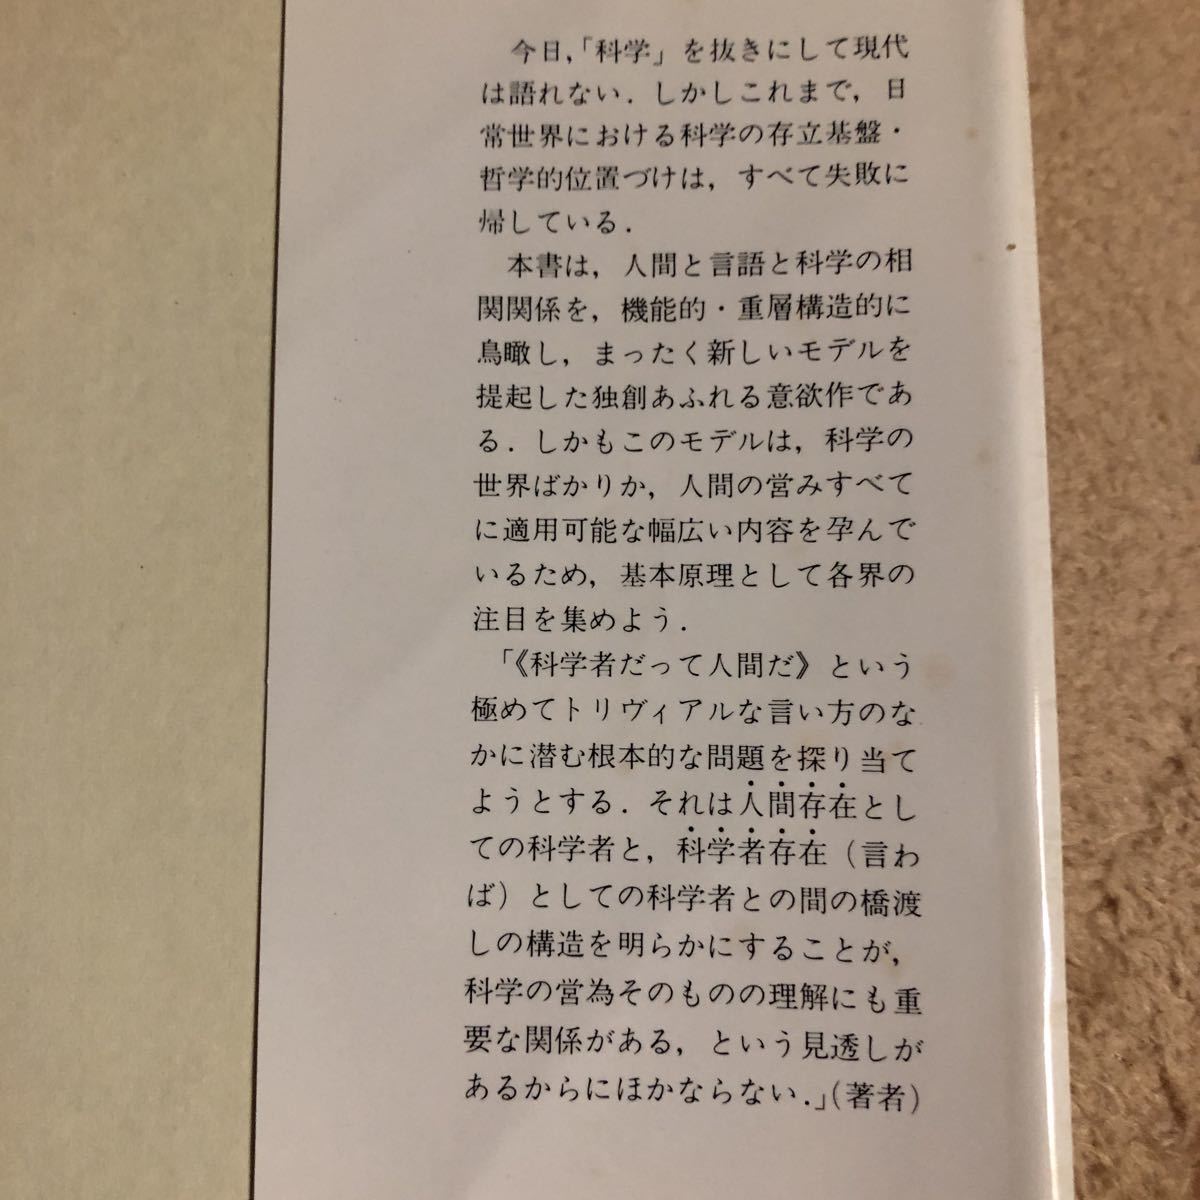 今日，「科学」を抜きにして現代
は語れない．しかしこれまで，日
常世界における科学の存立基盤・
哲学的位置づけは，すべて失敗に
帰している．
本書は，人間と言語と科学の相
関関係を，機能的・重層構造的に
鳥瞰し，まったく新しいモデルを
提起した独創あふれる意欲作であ
る．しかもこのモデルは，科学の
世界ばかりか，人間の営みすべて
に適用可能な幅広い内容を孕んで
いるため，基本原理として各界の
注目を集めよう．
「《科学者だって人間だ》という
極めてトリヴィアルな言い方のな
かに潜む根本的な問題を探り当て
ようとする．それは人間存在とし
ての科学者と，科学者存在（言わ
ば）としての科学者との間の橋渡
しの構造を明らかにすることが，
科学の営為そのものの理解にも重
要な関係がある，という見透しが
あるからにほかならない．」（著者）